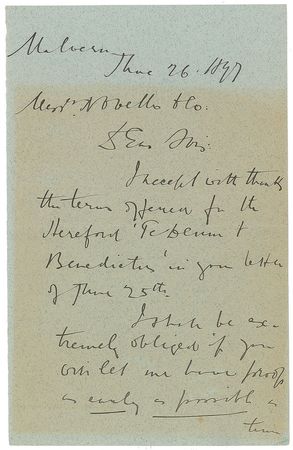 Malvern
June 26. 1897
Mess^rs Novello & Co:
Dear Sirs:
I accept with thanks
the terms offered for the
Hereford 'Te Deum &
Benedictus' in your letter
of June 25th.
I shall be ex-
tremely obliged if you
will let me have proofs
as early as possible as